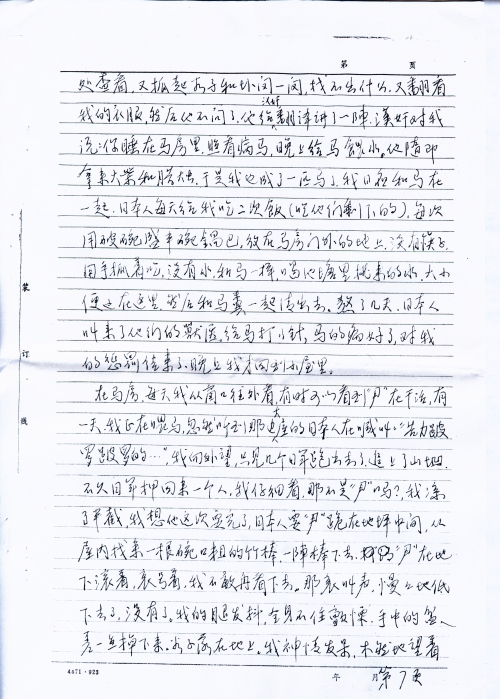 第 页
处查看,又抓起谷子和水闻一闻,找不出什么,又翻看
我的衣服,然后他不问了,他给汉奸翻译讲了一阵,汉奸对我
说:你睡在马房里,照看病马,晚上给马食水。他嘈即
拿来大叶和腊烛,于是我也成了一匹马了,我日夜和马在
一起,日本人每天给我吃二次飯(吃他们剩下的),每次
用破碗盛半碗锅巴,放在马房门外的地上,没有筷子,
用手抓着吃,没有水,和马一样喝他塘里挑来的水,大小
便也在这里,然后和马粪一起清出去。整了几天,日本人
叫来了他们的兽医,给马打了针,马的病好了,对我
的惩罰结束了,晚上我才回到小屋里。
在马房,每天我从窗口往外看,有时可以看到“尹”在干活,有
一天,我正在喂马,忽然听到那边大屋的日本人在喊叫:“苦力跛
罗跛罗的…”我向外望,只见几个日军跑出去了,追上了山坳,
不久日军押回来一个人,我仔细看,那不是“尹”吗?,我凉
了半截,我想他这次要完了,日本人要“尹”跪在地坪中间,从
屋内找来一根碗口粗的竹棒,一陣棒下去,“尹”在地
下滚着,哀号着,我不敢再看下去。那哀叫声,慢慢地低
下去了,没有了。我的腿发抖,全身不住颤慄,手中的盆
差一点掉下来,谷子落在地上,我神情发呆,木然地望着
4471·923 年 月 第7页
装 订 线